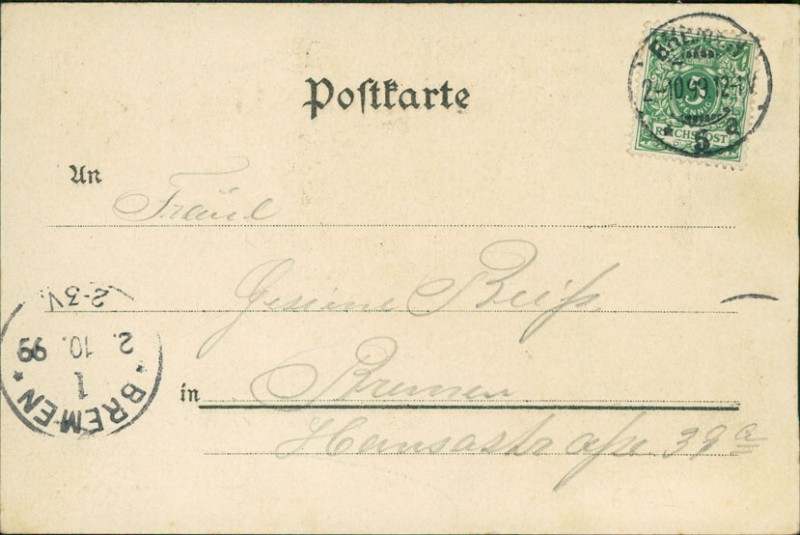 Postkarte
BREMEN
2-10 99 12-1V
5
PFENNIG
REICHSPOST
* 5 a
An
Fräul
Gesine Reiß
2-3V.
2. 10. 99
1
* BREMEN *
in
Bremen
Hansastraße 39a